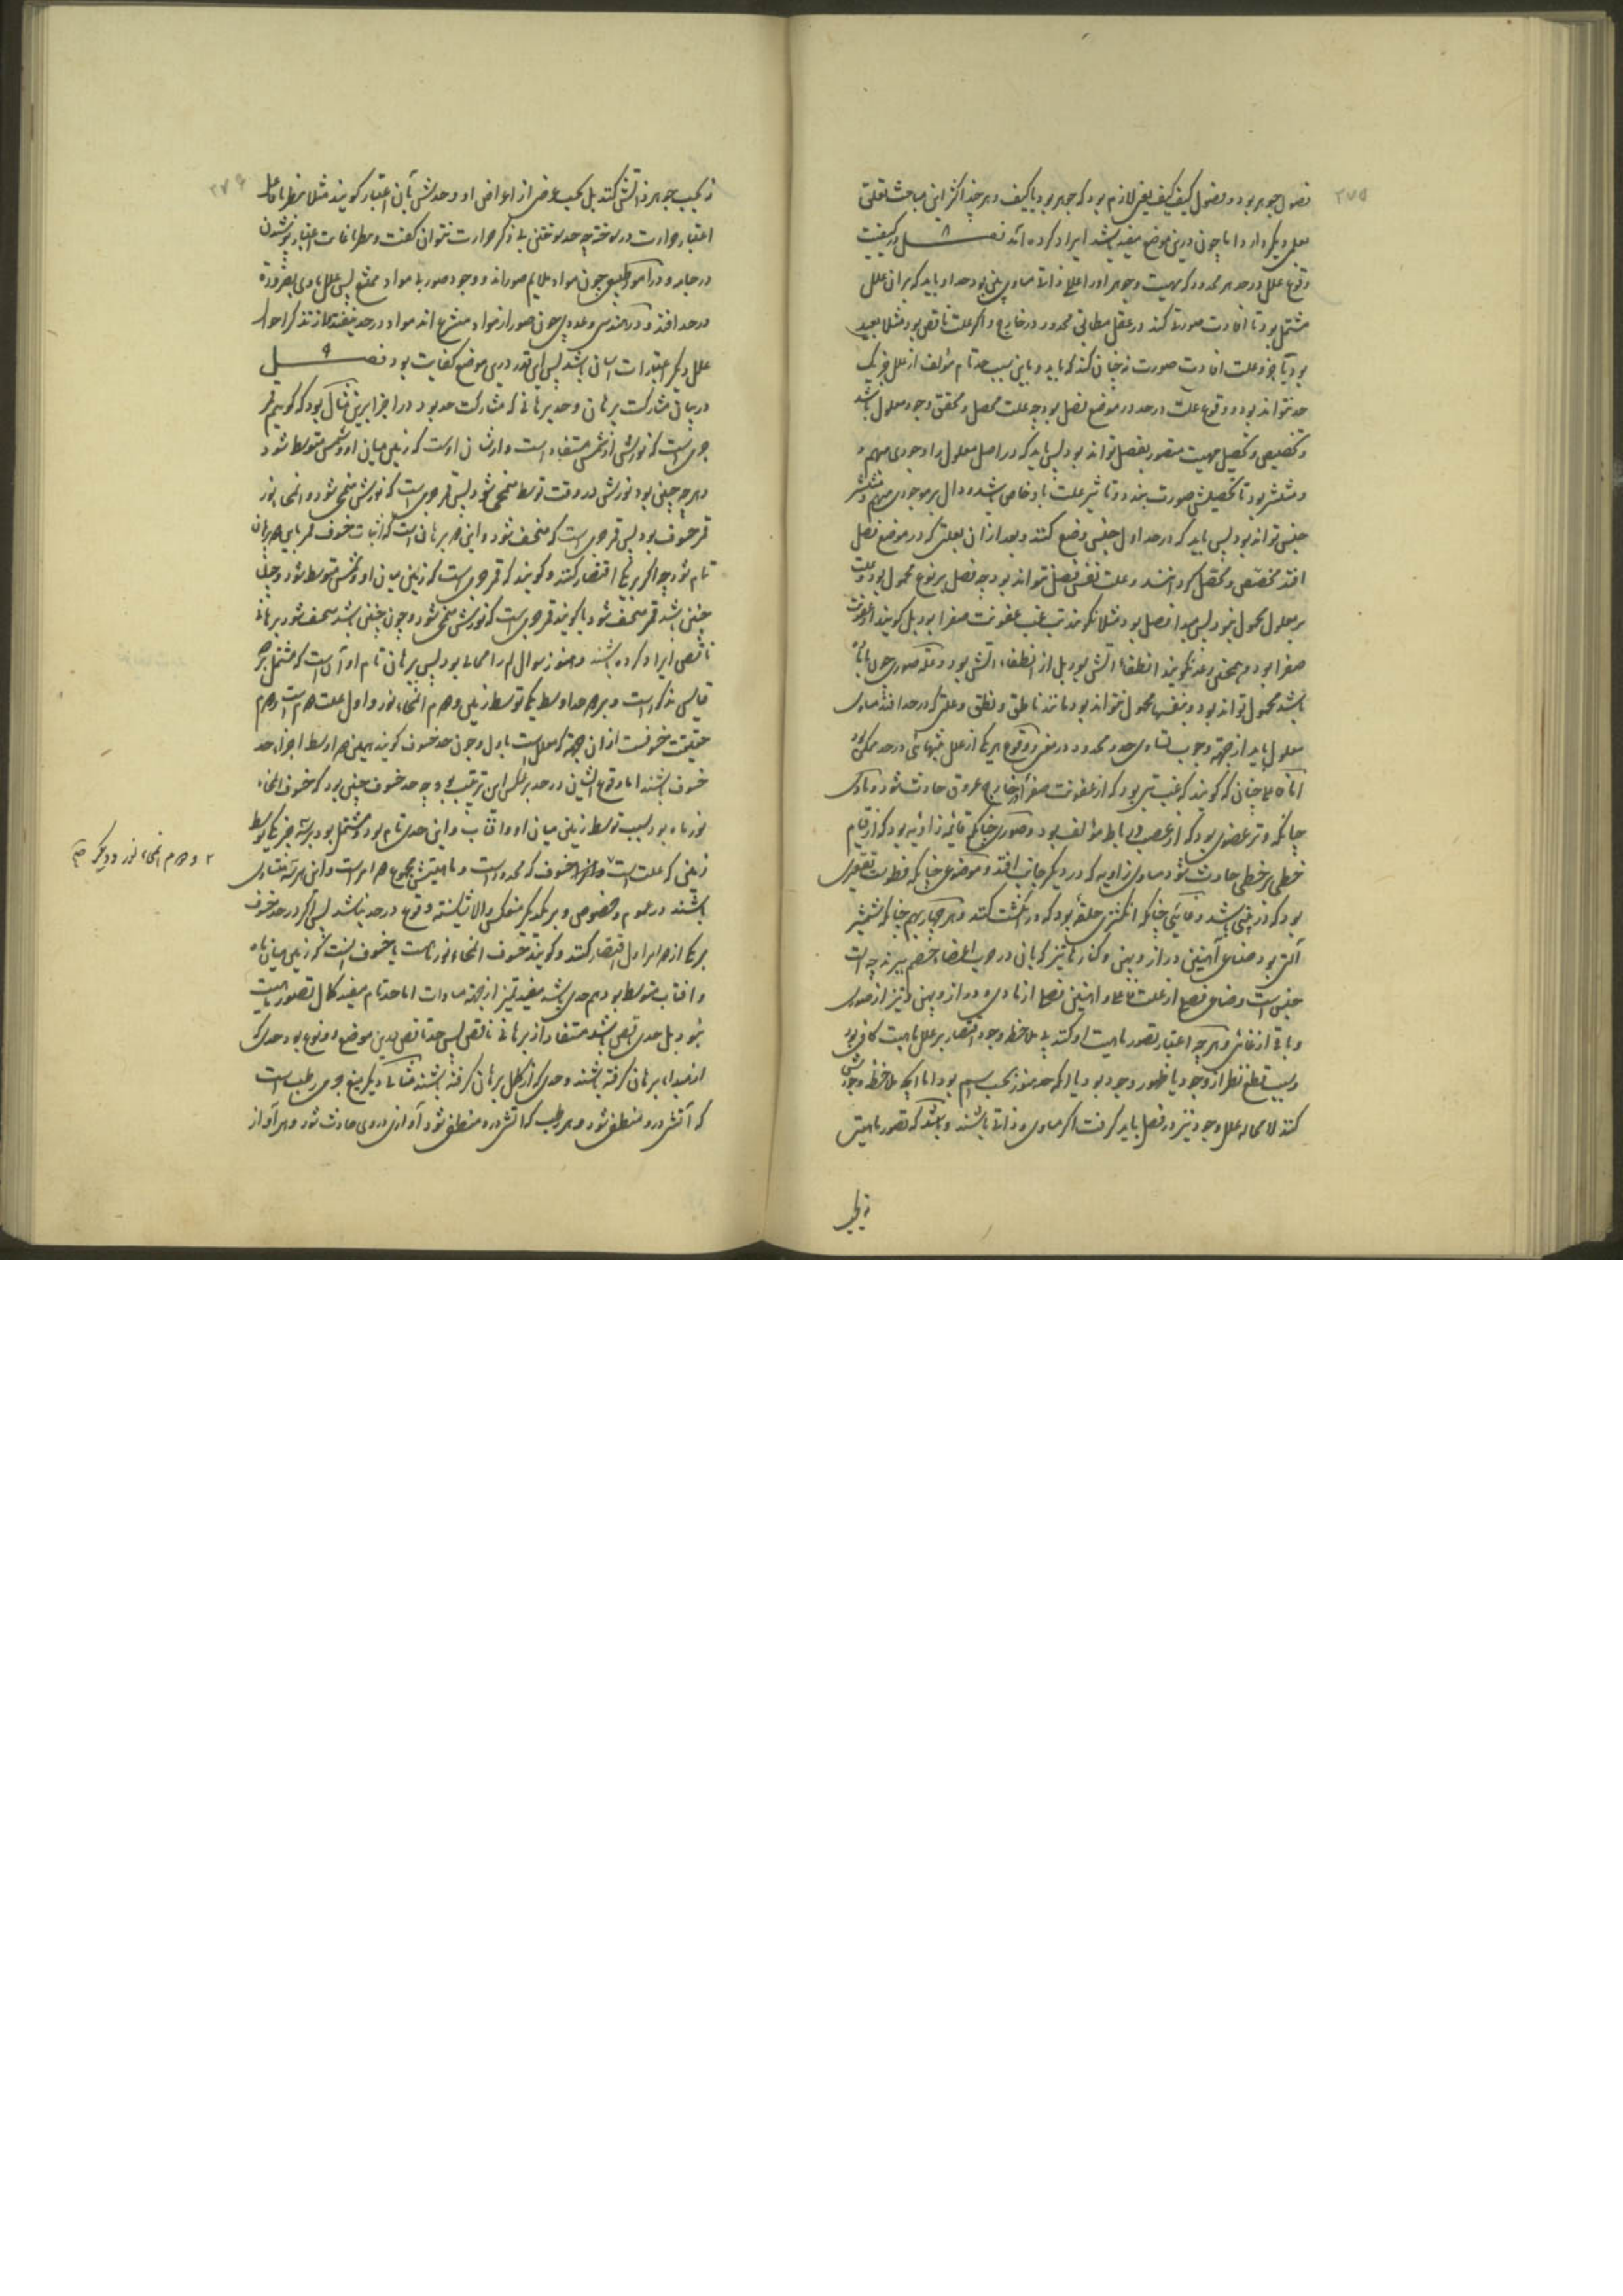 ۲۷۵
فصول جوهر بود و فصول کیف کیف یعنی لازم بود که جوهر بود یا کیف و هر چند اکثر این مباحث تعلق
بعلمی دیگر دارد اما چون درین موضع مفید باشد ایراد کرده آمد فصل ۸ در کیفیت
وقوع علل در حد هر محدود که مهیت و جوهر او را عللی ذاتی مساوی بود حد او باید که بر ان علل
مشتمل بود تا افادت صورتی کند در عقل مطابق محدود در خارج و اگر علت ناقص بود مثلا بعید
بود یا جزو علت افادت صورت نه چنان کند که باید و باین سبب حد تام مؤلف از علل جز یک
حد نتواند بود و وقوع علت در حد در موضع فصل بود چه علت محصل و محقق وجود معلول باشد
و تخصیص و تحصیل مهیت متصور بفصل تواند بود پس باید که در اصل معلول را وجودی مبهم
و منتشر بود تا تحصیلش صورت بندد و تاثیر علت باو خاص شود و دال بر موجودی مبهم و منتشر
جنس تواند بود پس باید که در حد اول جنس وضع کنند و بعد از ان بعلتی که در موضع فصل
افتد مخصص و محصل گردانند و علت نفس فصل نتواند بود چه فصل بر نوع محمول بود و علت
بر معلول محمول نبود پس مبدا فصل بود مثلا نگویند تب غب عفونت صفرا بود بل گویند از عفونت
صفرا بود و همچنین رعد نگویند انطفاء اتش بود بل از انطفاء اتش بود و علت صوری چون با ماده
باشد محمول تواند بود و بنفسها محمول نتواند بود مانند ناطق و نطق و علتی که در حد افتد مساوی
معلول باید از جهت وجوب تساوی حد و محدود در معنی و وقوع هر یک از علل بتنهائی در حد ممکن بود
اما فاعلی چنان که گویند که غب تبی بود که از عفونت صفرا در خارج عروق حادث شود و مادی
چنانکه وتر عضوی بود که از عصب و رباط مؤلف بود و صوری چنانکه قائمه زاویه بود که از قیام
خطی بر خطی حادث شود مساوی زاویه که در دیگر جانب افتد و موضوعی چنانکه فطوست تقعیری
بود که در بینی باشد و غائی چنانکه انگشتری حلقه بود که در انگشت کنند و هر چهار بهم چنانکه شمشیر
آلتی بود صناعی آهنین دراز و پهن و کنارها تیز که بان در حرب اعضاء خصم ببرند چه الت
جنس است و صناعی فصلی از علت فاعلی و اهنین فصلی از مادی و دراز و پهن و تیز از صوری
و باقی از غائی و هر چه اعتبار تصور ماهیت او کنند بی ملاحظه وجود اقتصار بر علل ماهیت کافی بود
و سبب قطع نظر از وجود یا ظهور وجود بود یا انکه حد هنوز بحسب اسم بود اما انچه ملاحظه وجودش
کنند لا محاله علل وجود نیز در فصل باید گرفت اگر مساوی و ذاتی باشند و باشد که تصور ماهیتش
نه بحسب
۲۷۶
نه بحسب جوهر ذاتش کنند بل بحسب عرضی از اعراض او و حدش بآن اعتبار گویند مثلا بنظر با فاعل
اعتبار حرارت در سوخته چه حد سوختن بی ذکر حرارت نتوان گفت و بنظر با غایت اعتبار پوشیدن
در جامه و در امور طبیعی چون مواد ملایم صوراند و وجود صور بی مواد ممتنع پس علل مادی بضرورت
در حد افتد و در هندسی و عددی چون صور از مواد منتزع اند مواد در حد نیفتد مگر از تذکر احوال
علل دیگر اعتبارات اسان باشد پس این قدر درین موضع کفایت بود فصل ۹
در بیان مشارکت برهان و حد برهانی که مشارکت حد بود در اجزا برین مثال بود که گوییم قمر
جرمی است که نورش از شمس مستفاد است و از شان اوست که زمین میان او و شمس متوسط شود
و هر چه چنین بود نورش در وقت توسط منمحی شود پس قمر جرمی است که نورش منمحی شود و انمحاء نور
قمر خسوف بود پس قمر جرمی است که منخسف شود و این دو برهان است که اثبات خسوف قمر باین دو برهان
تام شود چه اگر بر یکی اقتصار کنند و گویند که قمر جرمی است که زمین میان او و شمس متوسط شود و چون
چنین باشد قمر منخسف شود یا گویند قمر جرمی است که نورش منمحی شود و چون چنین باشد منخسف شود برهانی
ناقص ایراد کرده باشند و هنوز سوال لم را مجال بود پس برهان تام او آن است که مشتمل بر هر دو
قیاس مذکور است و بر دو حد اوسط یکی توسط زمین و دوم انمحاء نور و اول علت دوم است و دوم
حقیقت خسوفست از ان جهت که معلول است باول و چون حد خسوف گویند همین دو اوسط اجزاء حد
خسوف باشند اما وقوع ایشان در حد بر عکس این ترتیب بود چه حد خسوف چنین بود که خسوف انمحاء
نور ماه بود بسبب توسط زمین میان او و افتاب و این حدی تام بود و مشتمل بود بر سه جزو یکی توسط
زمین که علت است و دیگر خسوف که محدود است و ماهیتش مجموع هر دو است و این هر سه متساوی
باشند در عموم و خصوص و بر یکدیگر منعکس و الا شایسته وقوع در حد نباشد پس اگر در حد خسوف
بر یکی از هر دو اول اقتصار کنند و گویند خسوف انمحاء نور ماه است یا خسوف انست که زمین میان ماه
و افتاب متوسط بود هم حدی باشد مفید تمیز از جهت مساوات اما حد تام مفید کمال تصور ماهیت
نبود بل حدی ناقص باشد مستفاد از برهانی ناقص پس حد ناقص درین موضع دو نوع بود حدی که
از مبداء برهان گرفته باشند و حدی که از کمال برهان گرفته باشند مثالی دیگر میغ جرمی رطب است
که آتش درو منطفی شود و هر رطب که اتش درو منطفی شود آوازی دروی حادث شود و هر آواز
۲ و دوم انمحاء نور و دیگر صح